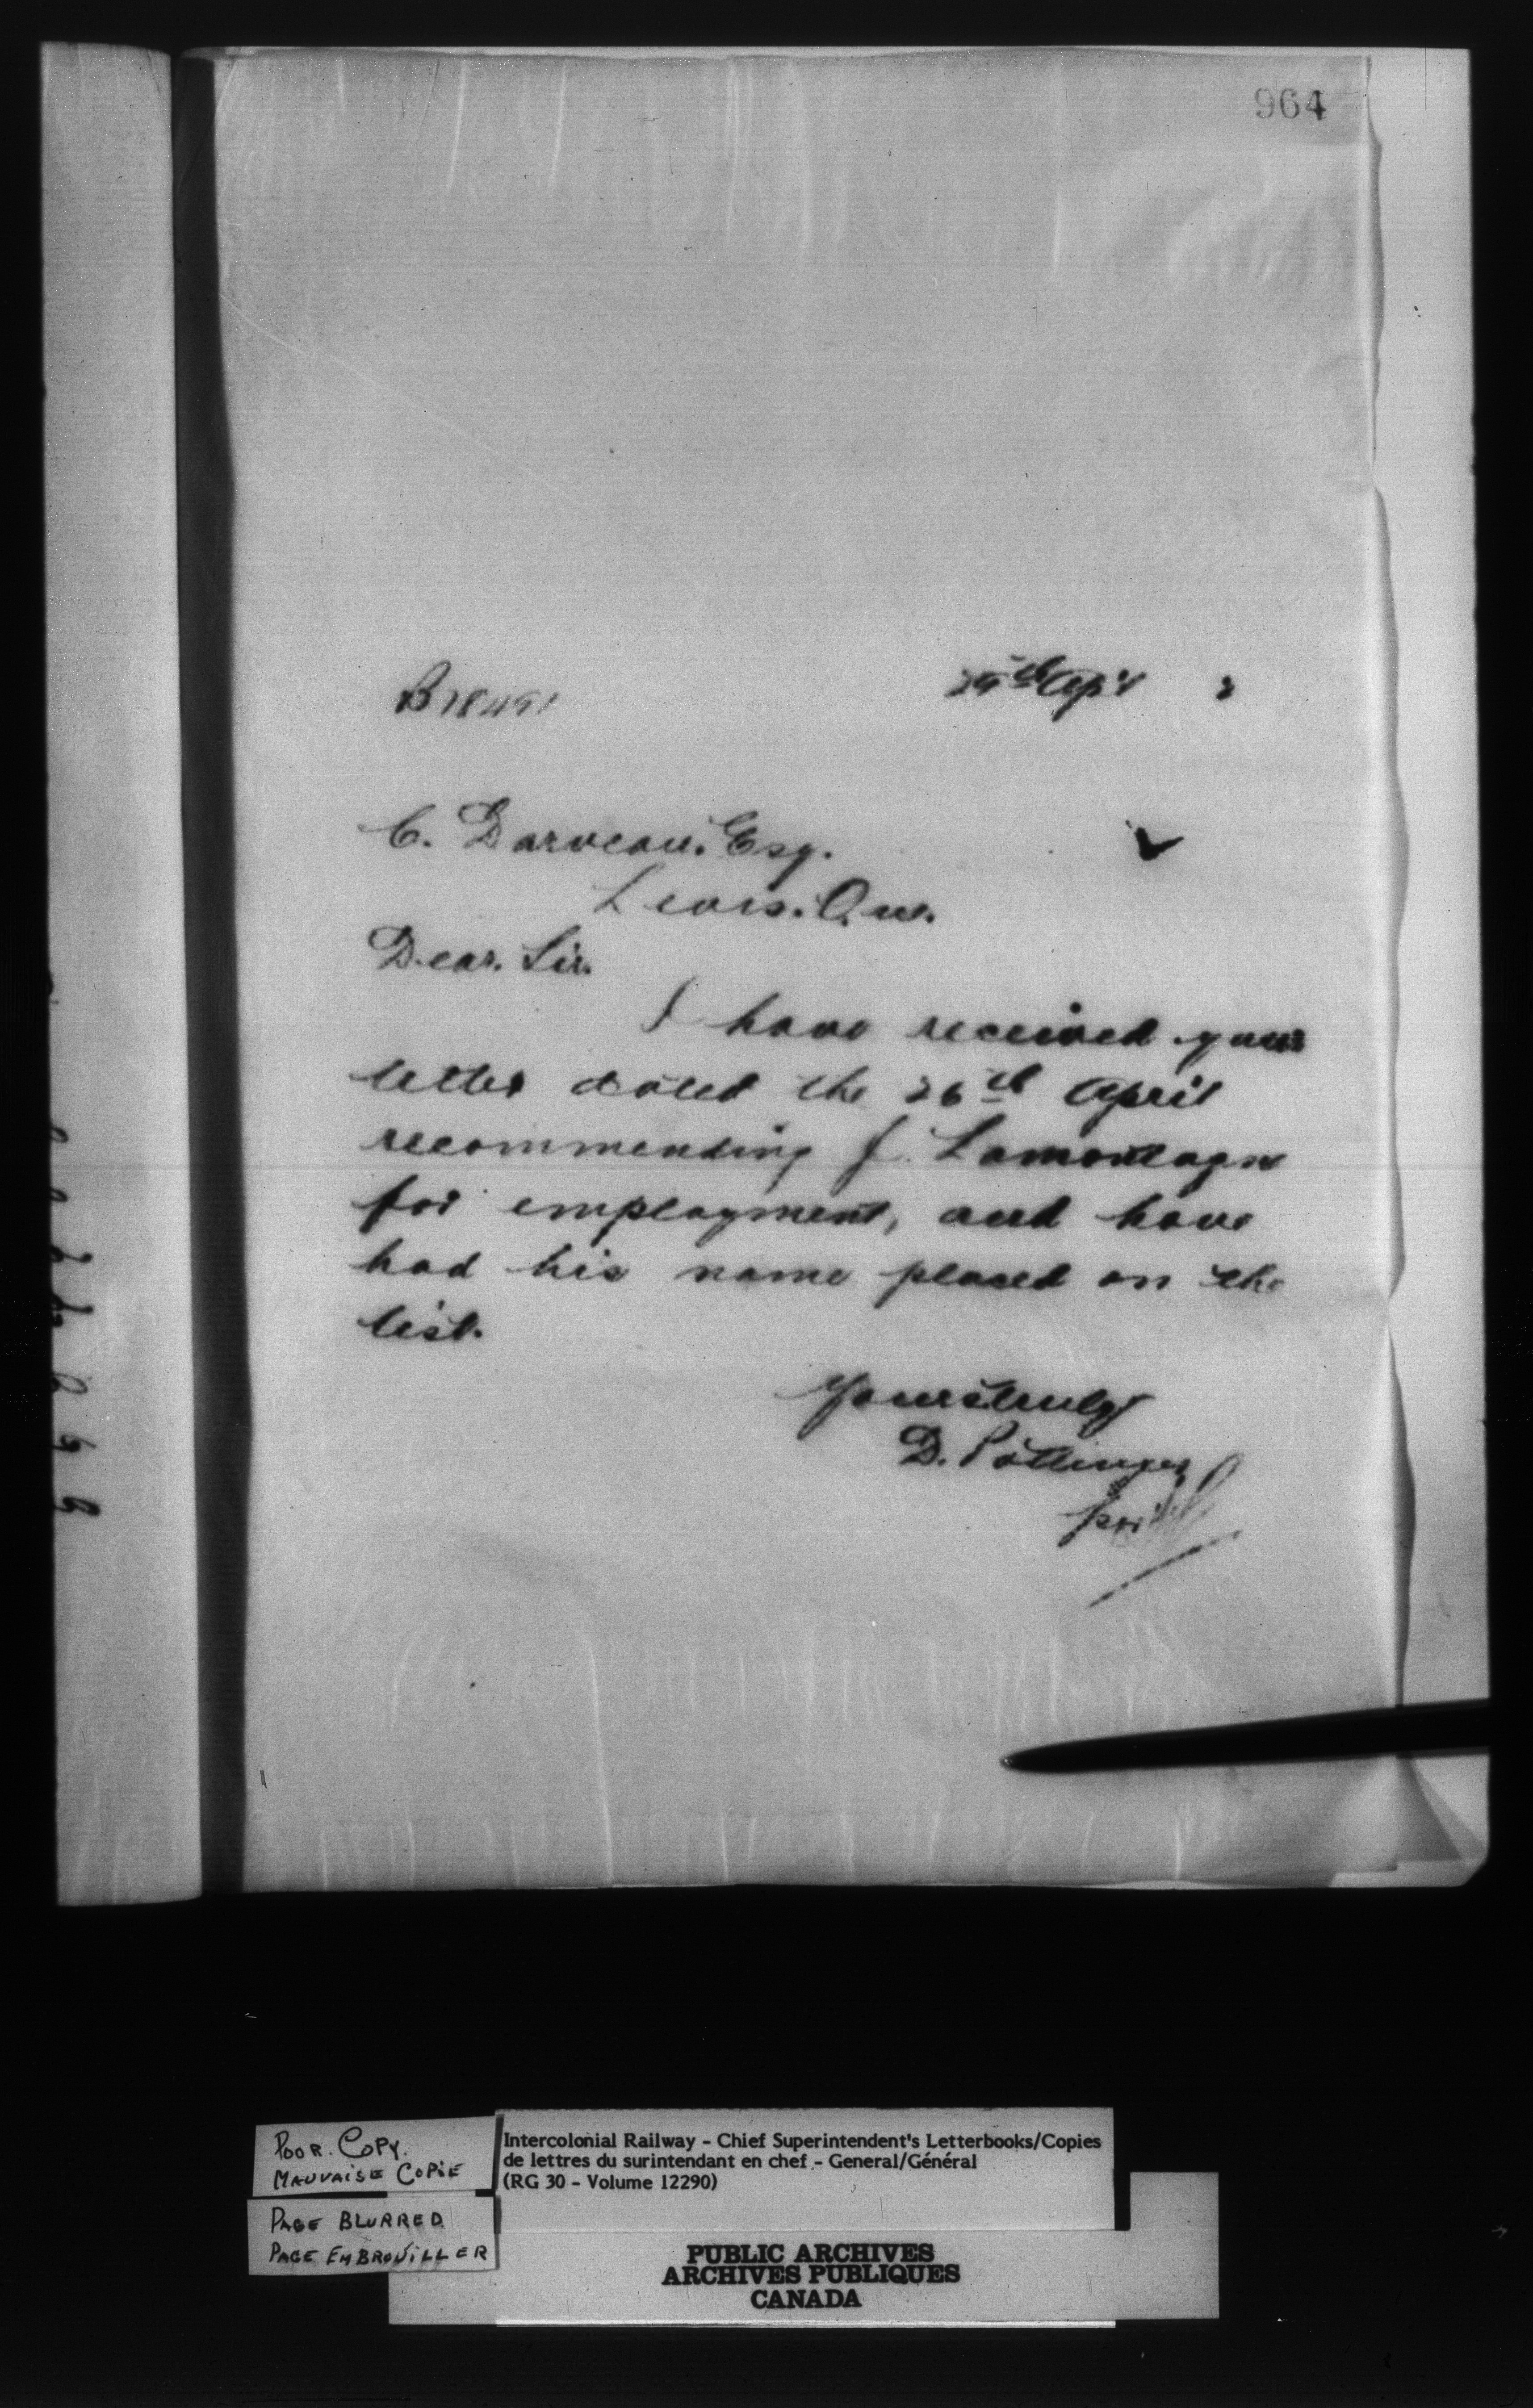 964
B18491
29th April 2
C. Darveau. Esq.
Levis. Que.
Dear. Sir.
I have received your
letter dated the 26th April
recommending J. Lamontagne
for employment, and have
had his name placed on the
list.
Yours truly
D. Pottinger
POOR. COPY.
MAUVAISE COPIE
PAGE BLURRED
PAGE EMBROUILLER
Intercolonial Railway - Chief Superintendent's Letterbooks/Copies
de lettres du surintendant en chef - General/Général
(RG 30 - Volume 12290)
PUBLIC ARCHIVES
ARCHIVES PUBLIQUES
CANADA